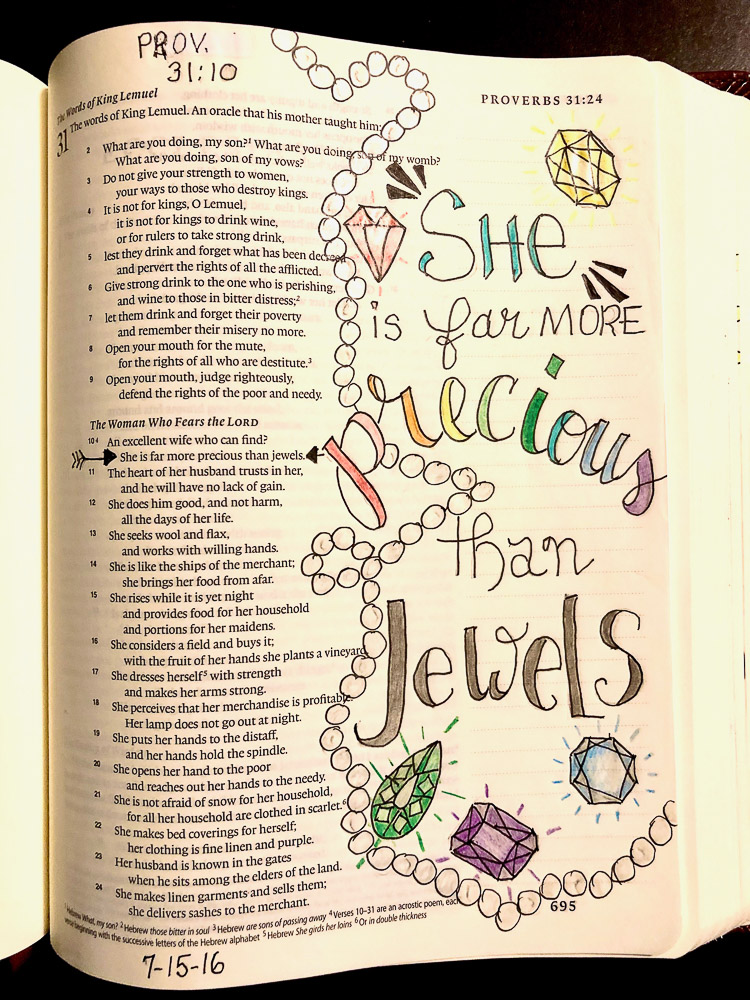 PROV.
31:10
PROVERBS 31:24
The Words of King Lemuel
31 The words of King Lemuel. An oracle that his mother taught him:
2 What are you doing, my son?1 What are you doing, son of my womb?
What are you doing, son of my vows?
3 Do not give your strength to women,
your ways to those who destroy kings.
4 It is not for kings, O Lemuel,
it is not for kings to drink wine,
or for rulers to take strong drink,
5 lest they drink and forget what has been decreed
and pervert the rights of all the afflicted.
6 Give strong drink to the one who is perishing,
and wine to those in bitter distress;2
7 let them drink and forget their poverty
and remember their misery no more.
8 Open your mouth for the mute,
for the rights of all who are destitute.3
9 Open your mouth, judge righteously,
defend the rights of the poor and needy.
The Woman Who Fears the LORD
10 4 An excellent wife who can find?
She is far more precious than jewels.
11 The heart of her husband trusts in her,
and he will have no lack of gain.
12 She does him good, and not harm,
all the days of her life.
13 She seeks wool and flax,
and works with willing hands.
14 She is like the ships of the merchant;
she brings her food from afar.
15 She rises while it is yet night
and provides food for her household
and portions for her maidens.
16 She considers a field and buys it;
with the fruit of her hands she plants a vineyard.
17 She dresses herself5 with strength
and makes her arms strong.
18 She perceives that her merchandise is profitable.
Her lamp does not go out at night.
19 She puts her hands to the distaff,
and her hands hold the spindle.
20 She opens her hand to the poor
and reaches out her hands to the needy.
21 She is not afraid of snow for her household,
for all her household are clothed in scarlet.6
22 She makes bed coverings for herself;
her clothing is fine linen and purple.
23 Her husband is known in the gates
when he sits among the elders of the land.
24 She makes linen garments and sells them;
she delivers sashes to the merchant.
1 Hebrew What, my son? 2 Hebrew those bitter in soul 3 Hebrew are sons of passing away 4 Verses 10–31 are an acrostic poem, each
verse beginning with the successive letters of the Hebrew alphabet 5 Hebrew She girds her loins 6 Or in double thickness
7-15-16
SHe
is far MORE
Precious
than
Jewels
695